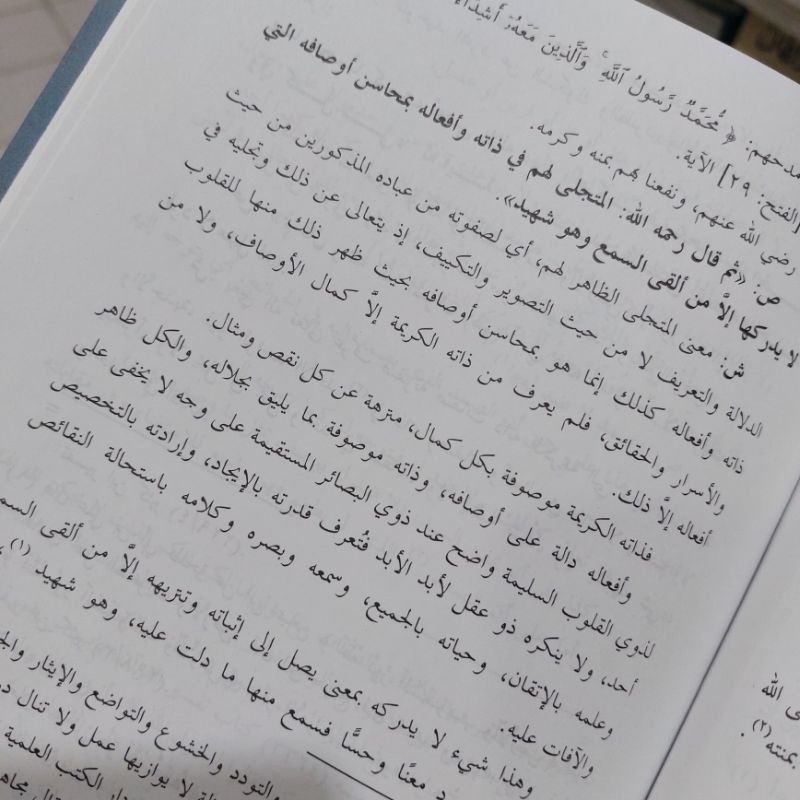 مدحهم: ﴿ مُّحَمَّدٌ رَّسُولُ ٱللَّهِ ۚ وَٱلَّذِينَ مَعَهُۥٓ أَشِدَّآءُ
[الفتح: ٢٩] الآية.
رضي الله عنهم، ونفعنا بهم بمنه وكرمه.
ص: «ثم قال رحمه الله: المتجلى لهم في ذاته وأفعاله بمحاسن أوصافه التي
لا يدركها إلَّا من ألقى السمع وهو شهيد».
ش: معنى المتجلى الظاهر لهم، أي لصفوته من عباده المذكورين من حيث
الدلالة والتعريف لا من حيث التصوير والتكييف، إذ يتعالى عن ذلك وتجليه في
ذاته وأفعاله كذلك إنما هو بمحاسن أوصافه بحيث ظهر ذلك منها للقلوب
والأسرار والحقائق، فلم يعرف من ذاته الكريمة إلَّا كمال الأوصاف، ولا من
أفعاله إلَّا ذلك.
فذاته الكريمة موصوفة بكل كمال، منزهة عن كل نقص ومثال.
وأفعاله دالة على أوصافه، وذاته موصوفة بما يليق بجلاله، والكل ظاهر
لذوي القلوب السليمة واضح عند ذوي البصائر المستقيمة على وجه لا يخفى على
أحد، ولا ينكره ذو عقل لأبد الأبد فتُعرف قدرته بالإيجاد، وإرادته بالتخصيص
وعلمه بالإتقان، وحياته بالجميع، وسمعه وبصره وكلامه باستحالة النقائص
والآفات عليه.
وهذا شيء لا يدركه بمعنى يصل إلى إثباته وتنزيهه إلَّا من ألقى
معنًا وحسًّا فسمع منها ما دلت عليه، وهو شهيد (١)
والتودد والخشوع والتواضع والإيثار
لا يوازيها عمل ولا تنال
دار الكتب العلمية
ى الله
بمنته (٢).